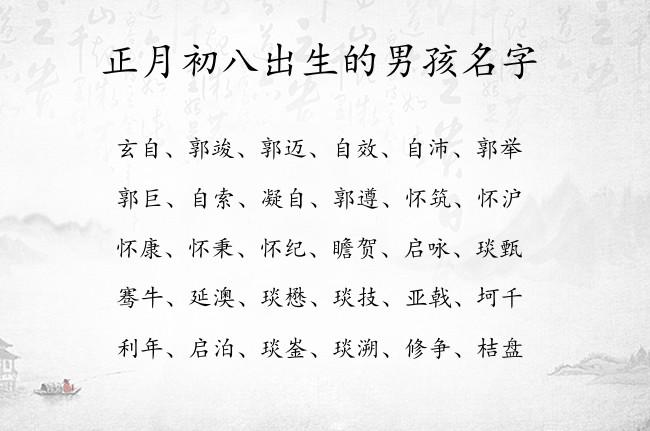 正月初八出生的男孩名字
玄自、郭竣、郭迈、自效、自沛、郭举
郭巨、自索、凝自、郭遵、怀筑、怀沪
怀康、怀秉、怀纪、瞻贺、启咏、琰甄
骞牛、延澳、琰懋、琰技、亚戟、坷千
利年、启泊、琰崟、琰溯、修争、桔盘